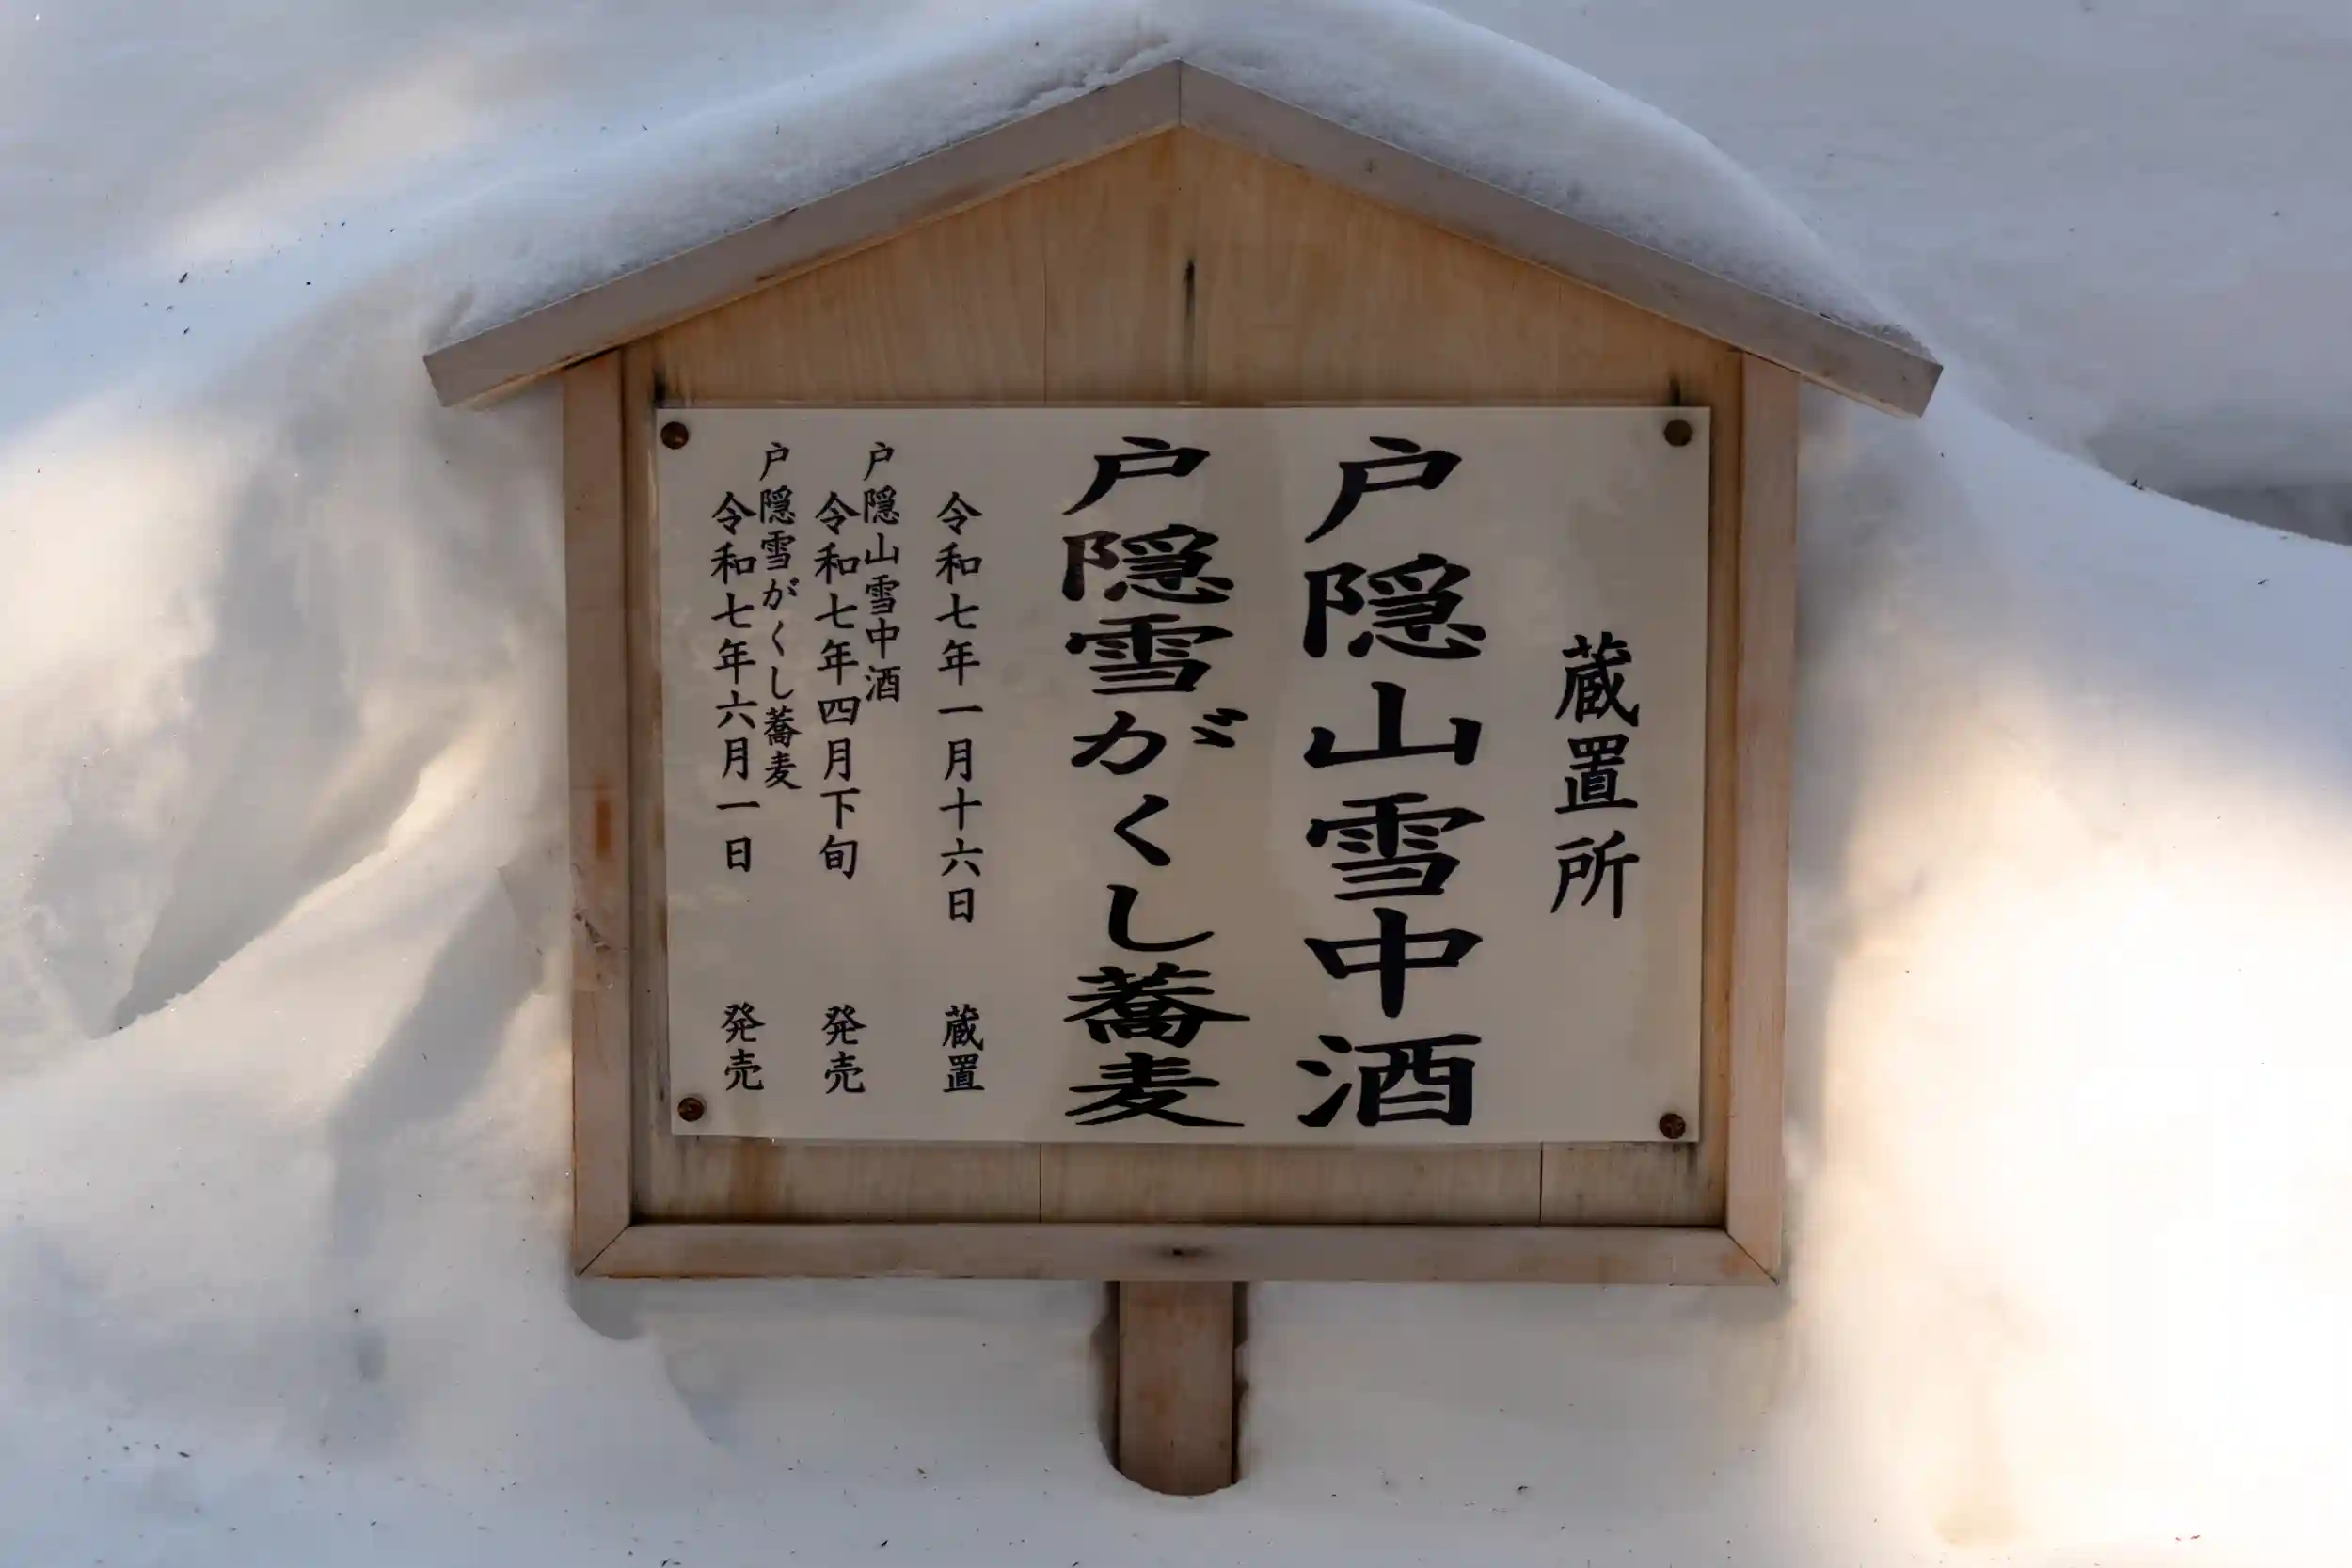 蔵置所
戸隠山雪中酒
戸隠雪がくし蕎麦
令和七年一月十六日 蔵置
戸隠山雪中酒
令和七年四月下旬 発売
戸隠雪がくし蕎麦
令和七年六月一日 発売